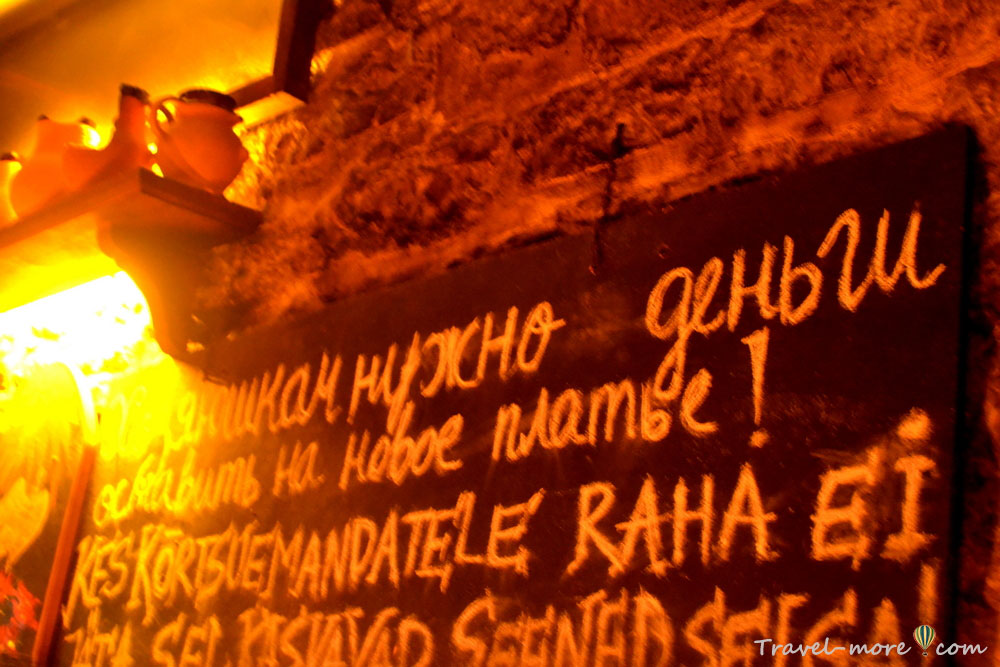 нужно деньги
оставить на новое платье!
KES KÕRTSUEMANDATELE RAHA EI
JÄTA SEL KASVAVAD SEENED SELGA!
Travel-more.com